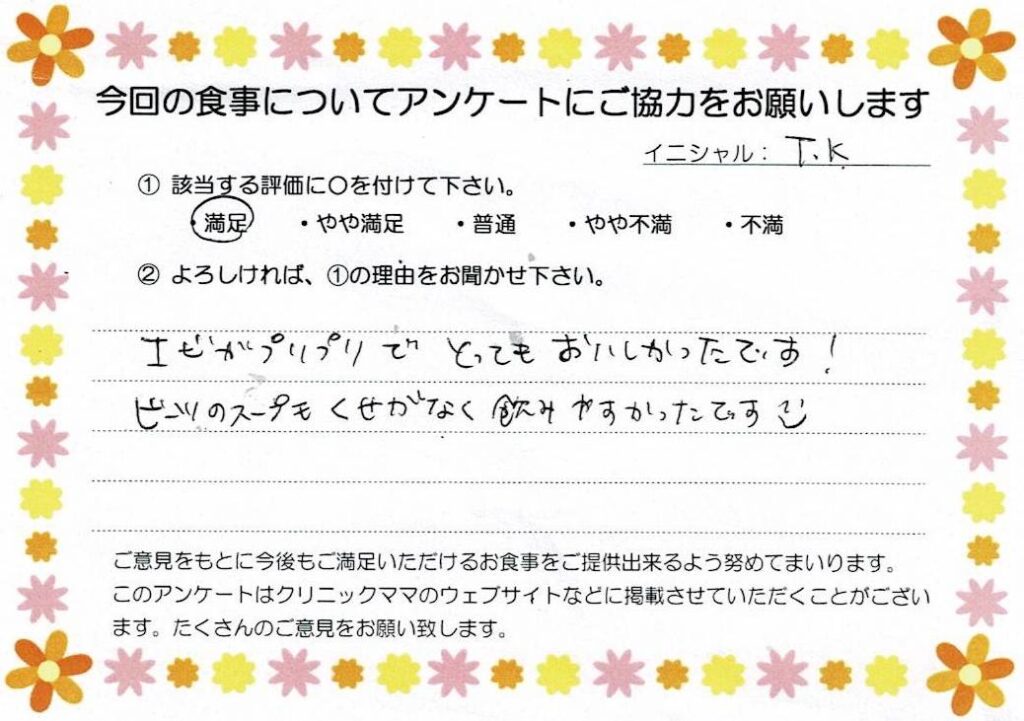 今回の食事についてアンケートにご協力をお願いします
イニシャル： T.K
① 該当する評価に〇を付けて下さい。
・満足 ・やや満足 ・普通 ・やや不満 ・不満
② よろしければ、①の理由をお聞かせ下さい。
エビがプリプリで とっても おいしかったです！
ビーツのスープも くせがなく 飲みやすかったです
ご意見をもとに今後もご満足いただけるお食事をご提供出来るよう努めてまいります。
このアンケートはクリニックママのウェブサイトなどに掲載させていただくことがござい
ます。たくさんのご意見をお願い致します。